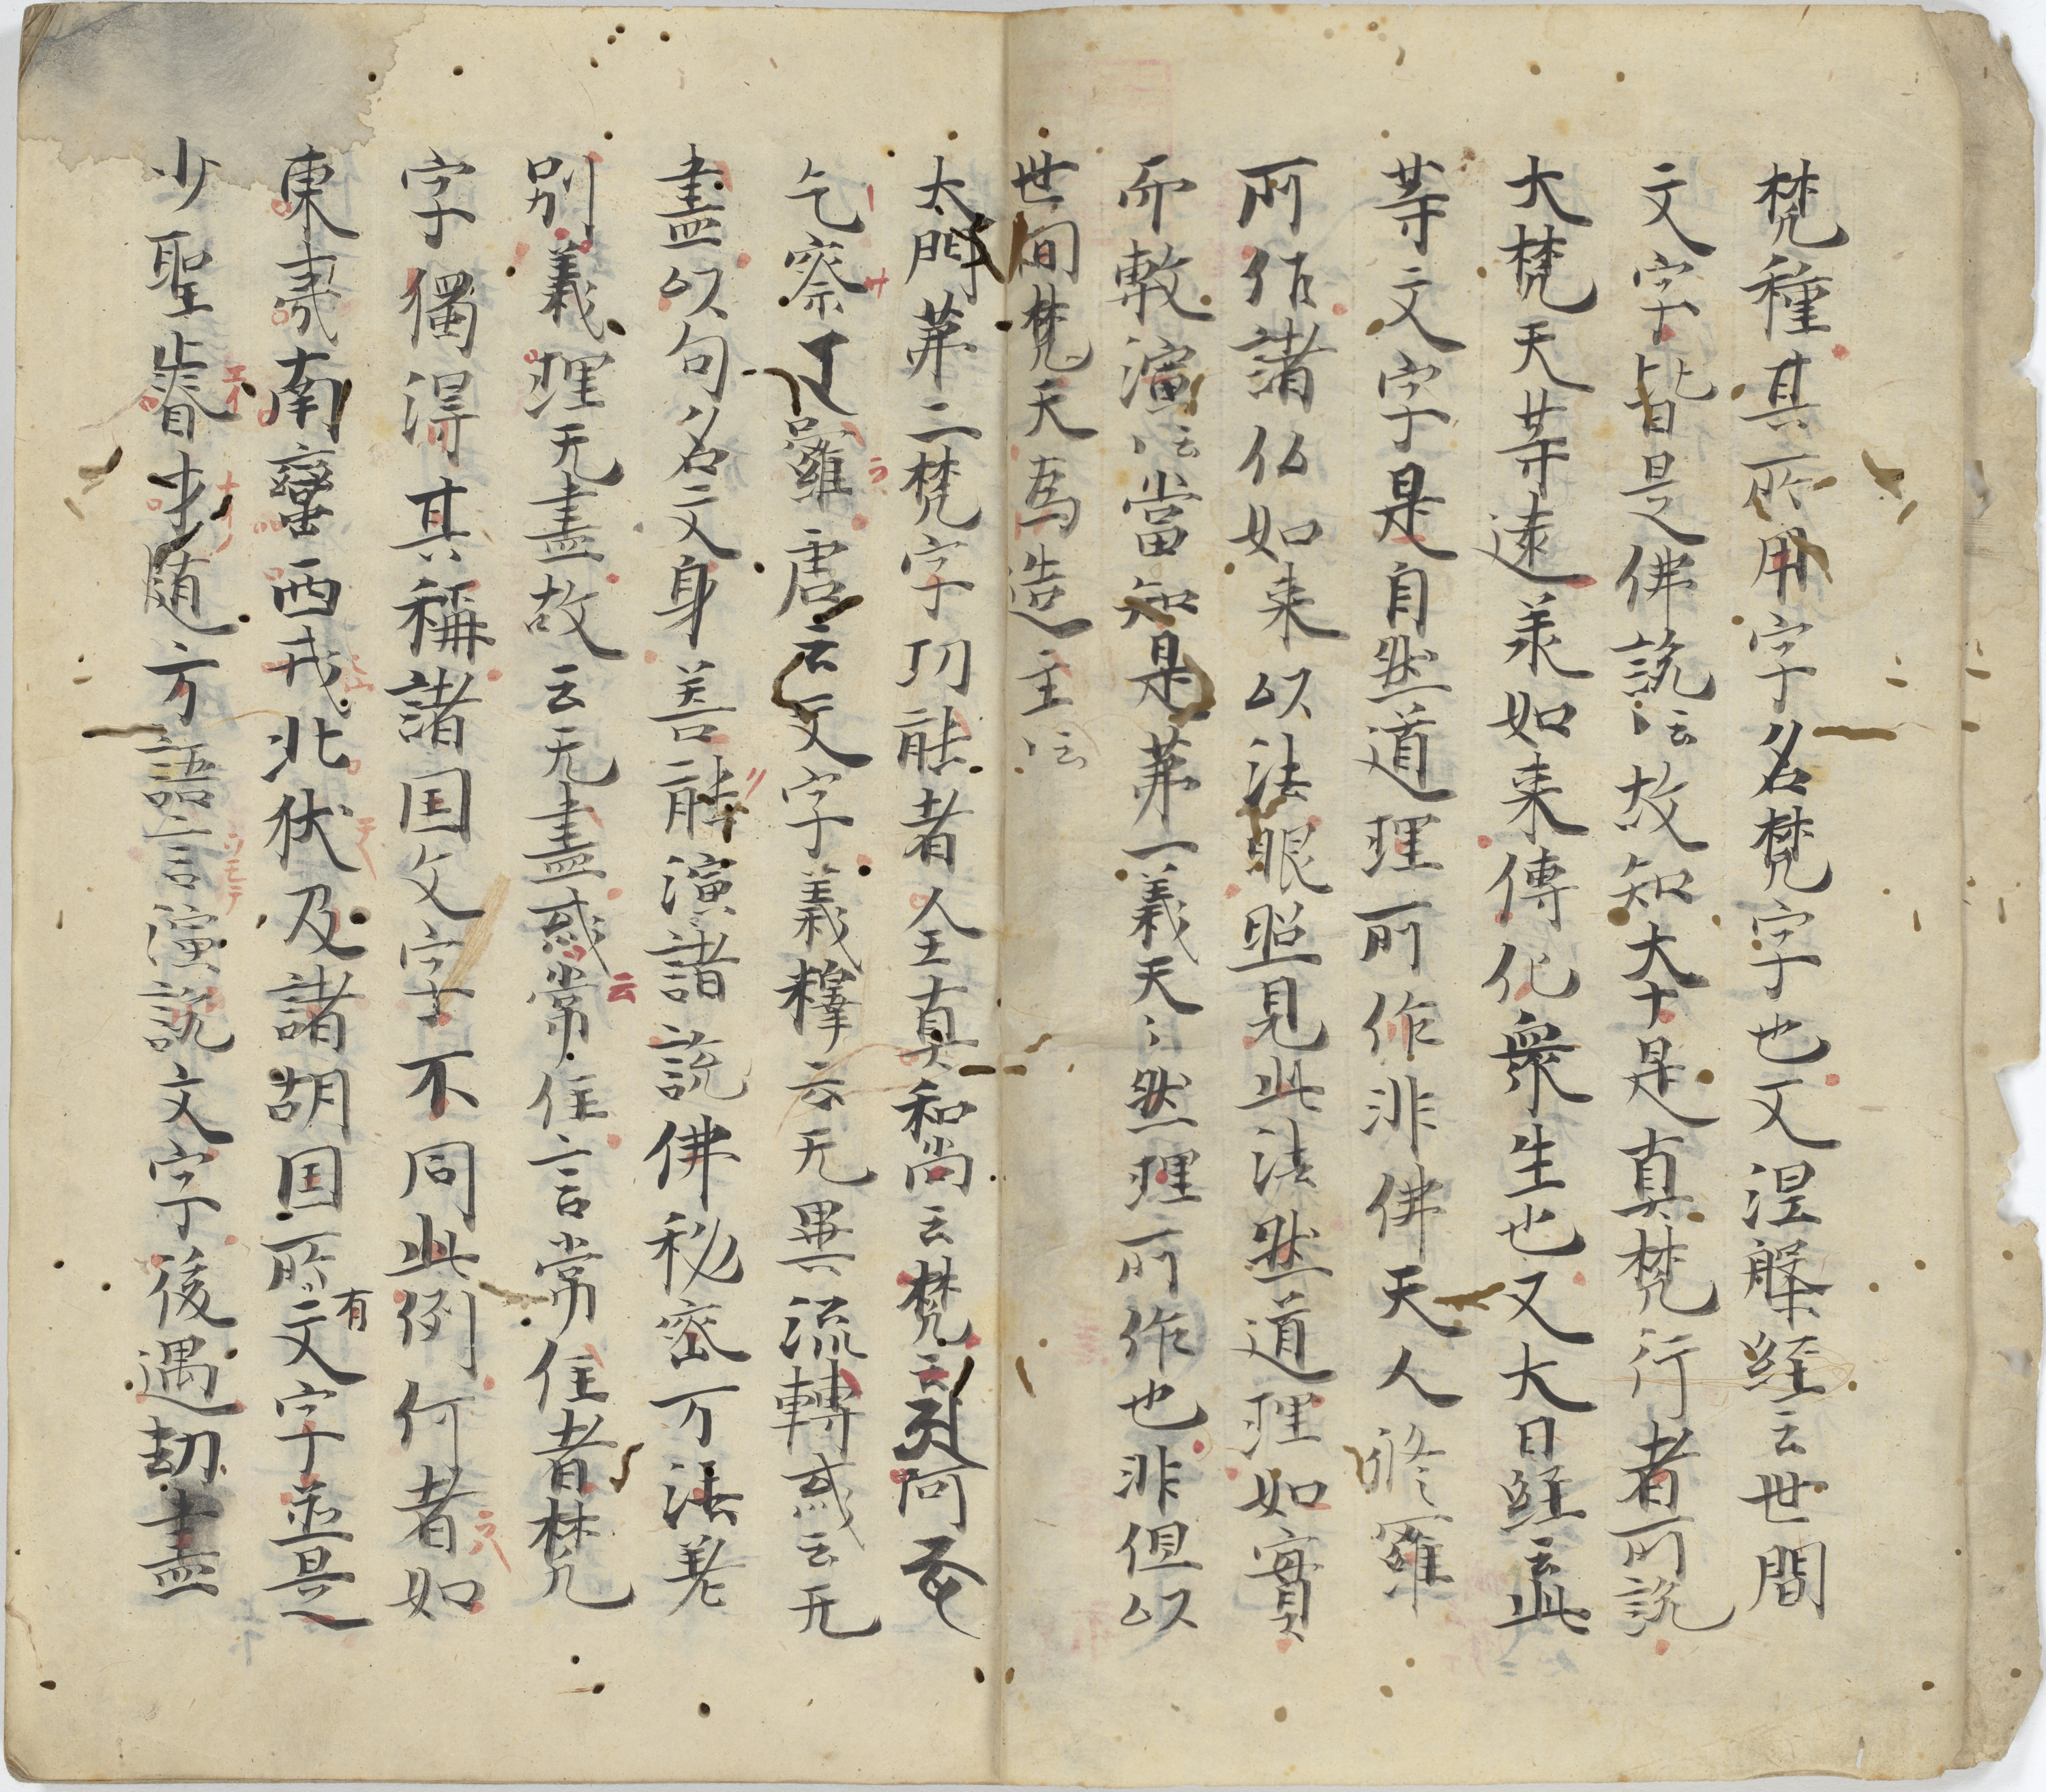 梵種其所用字名梵字也又涅槃経云世間
文字皆是佛説云云故知大十是真梵行者所説
大梵天等遠羕如来傳化衆生也又大日経云此
等文字是自然道理所作非佛天人修羅
所作諸仏如来以法眼照見此法然道理如實
而敷演云云當知是苐一義天々然理所作也非但以
世间梵天為造主云云
大門苐二梵字功能者全真和尚云梵云阿
乞察羅唐云文字義釋云无異流轉或云无
盡以句名文身善能演諸説佛秘密万法差
別義理无盡故云无盡或常住言常住者梵
字獨得其稱諸国文字不同此例何者如
東夷南蠻西戎北狄及諸胡国所有文字並是
少聖睿才随方語言演説文字後遇劫盡